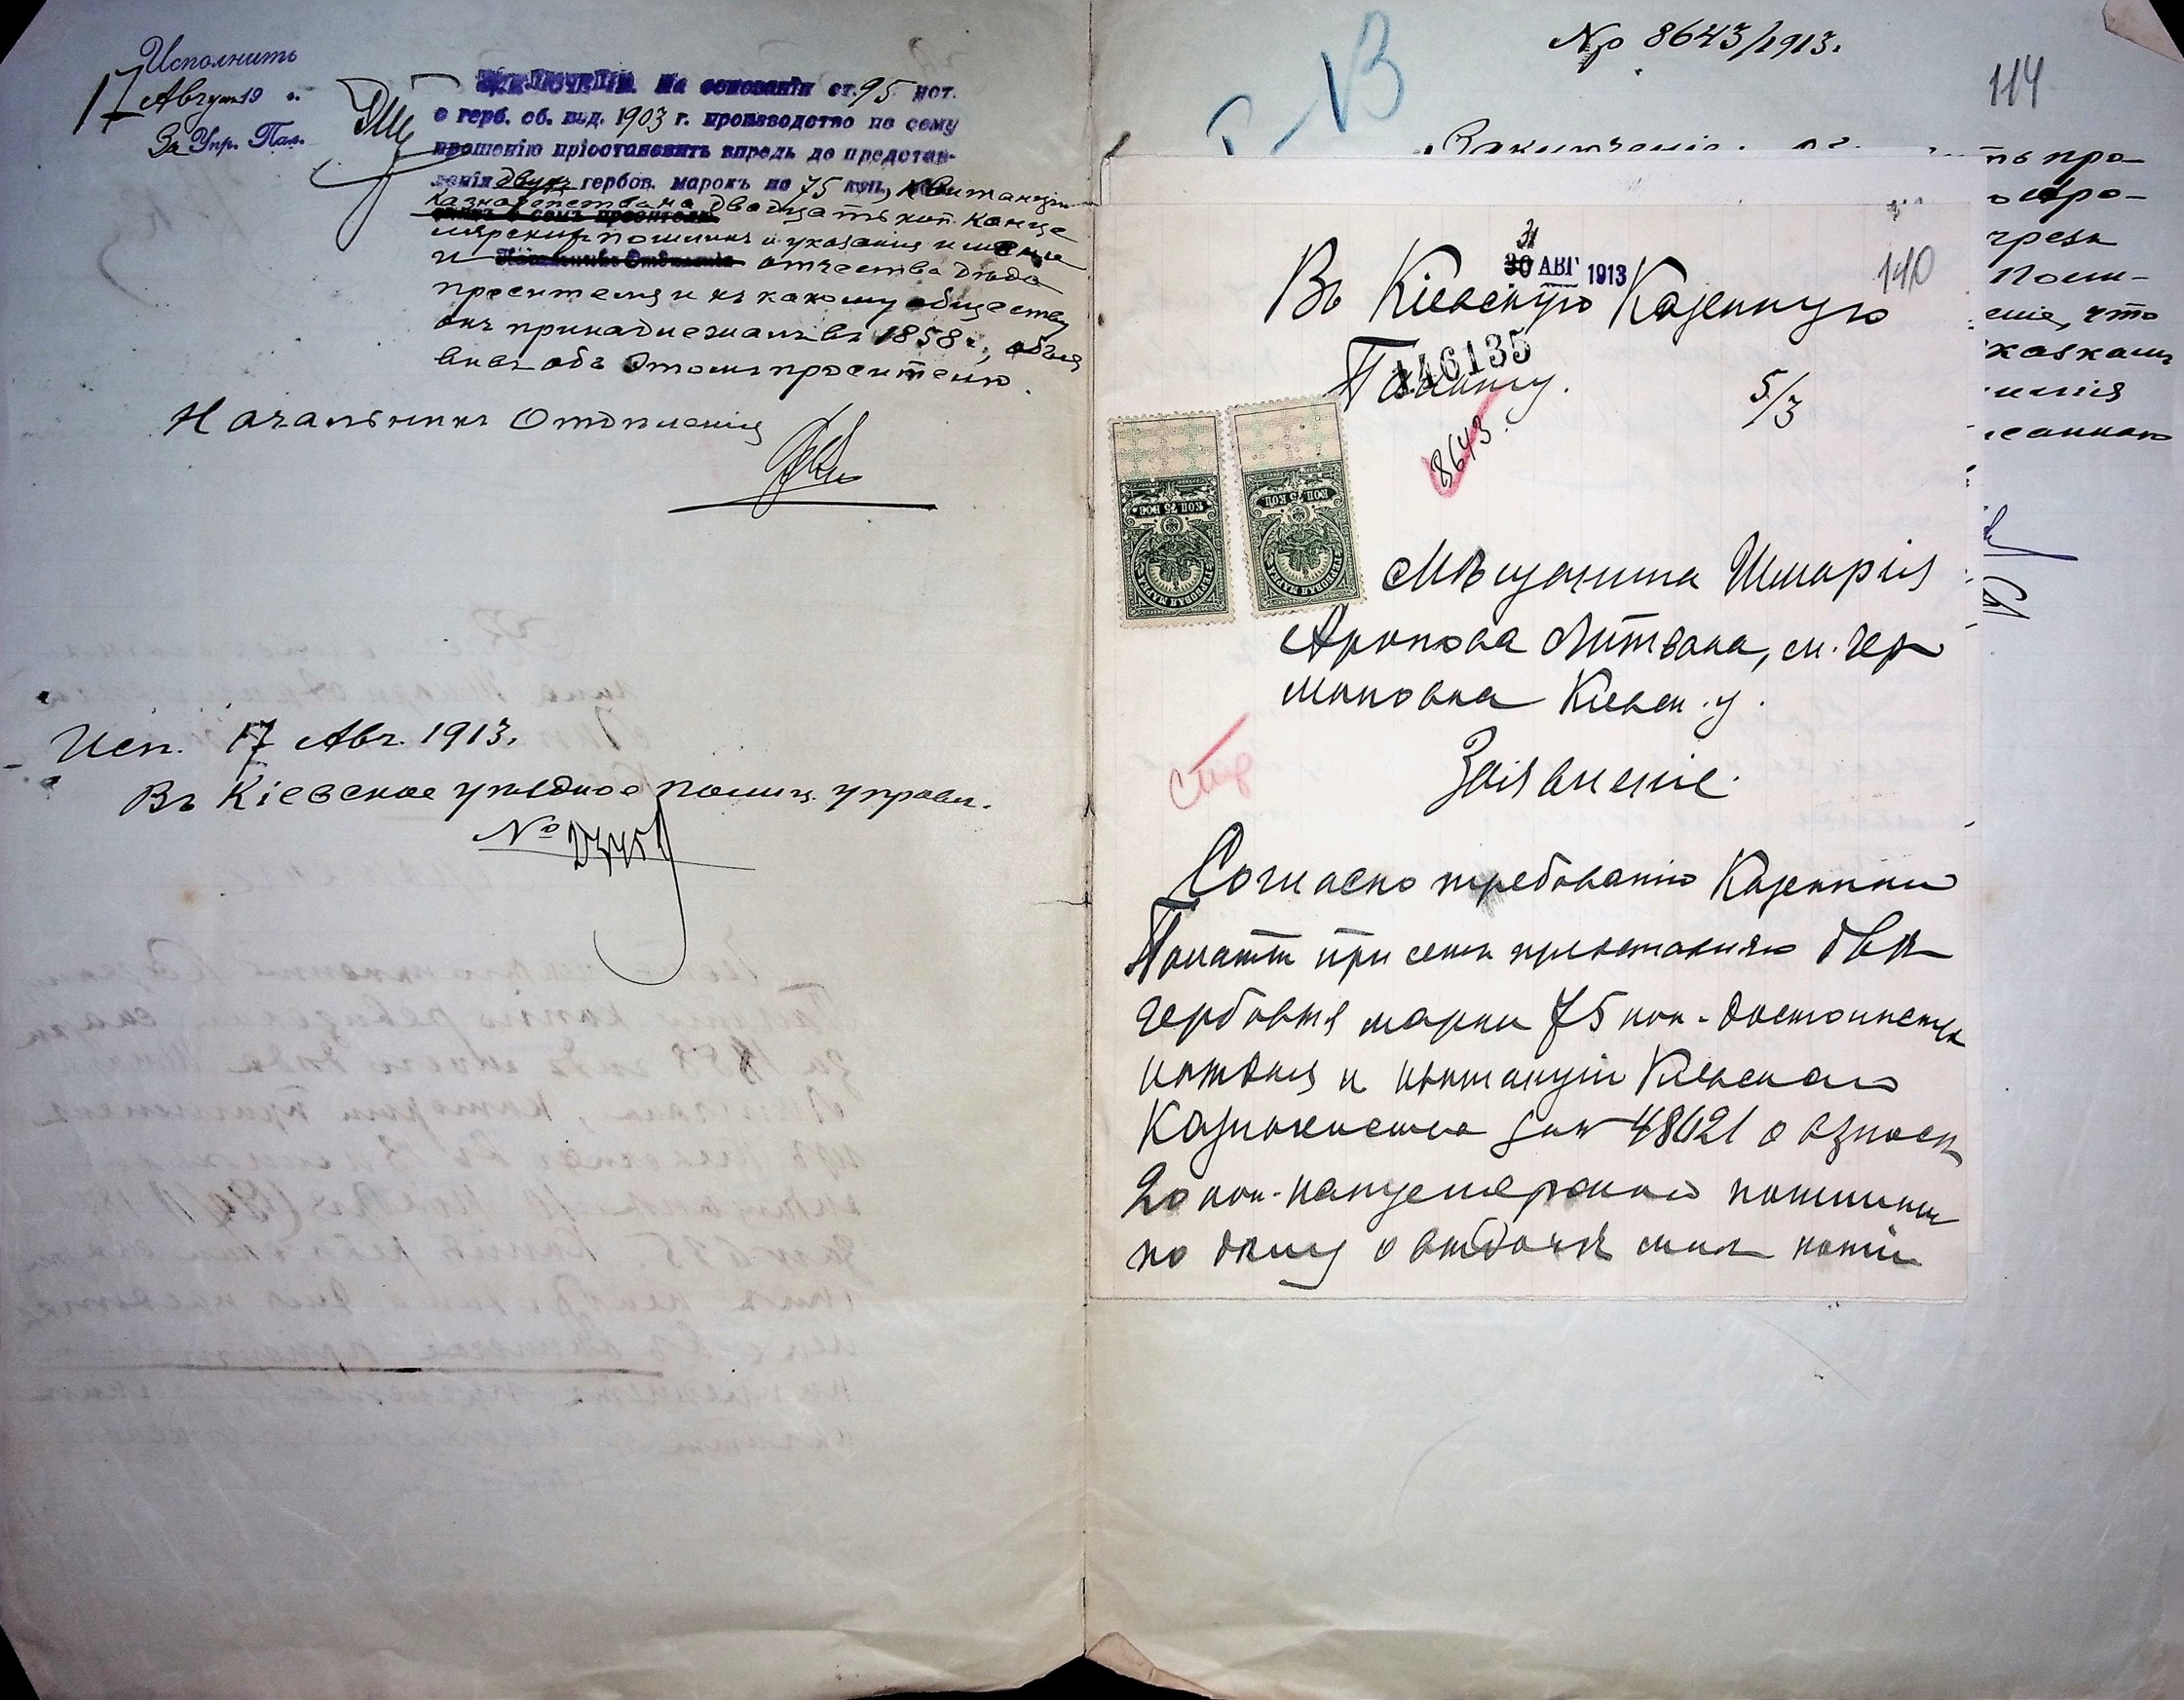 Исполнить
17 Августа 19 г.
За Упр. Пал.
ЗАКЛЮЧЕНІЕ. На основаніи ст. 95 уст.
о герб. сб. изд. 1903 г. производство по сему
прошенію пріостановить впредь до представ-
ленія двухъ гербов. марокъ по 75 коп., квитанціи
Казначейства на двадцать коп. канце
лярскихъ пошлинъ и указанія имени
и отчества дѣда
просителя и къ какому обществу
онъ принадлежалъ въ 1858 г., объя
вивъ объ этомъ просителю.
Начальникъ Отдѣленія
Исп. 17 Авг. 1913.
Въ Кіевское уѣздное полиц. управл.
№
№ 8643/1913.
114
Заключеніе.
ть про
чрезъ
Поли-
еніе, что
31
30 АВГ 1913
140
Въ Кіевскую Казенную
Палату.
146135
5/3
8643
КОП 75 КОП
КОП 75 КОП
Мѣщанина Шмарія
Аронова Литвака, м. Гер
мановка Кіевск. у.
Заявленіе.
Согласно требованію Казенной
Палаты при семъ представляю двѣ
гербовыя марки 75 коп. достоинствъ
каждая и квитанцію Кіевскаго
Казначейства за № 48621 о взносѣ
20 коп. канцелярской пошлины
по дѣлу о выдачѣ мнѣ копіи